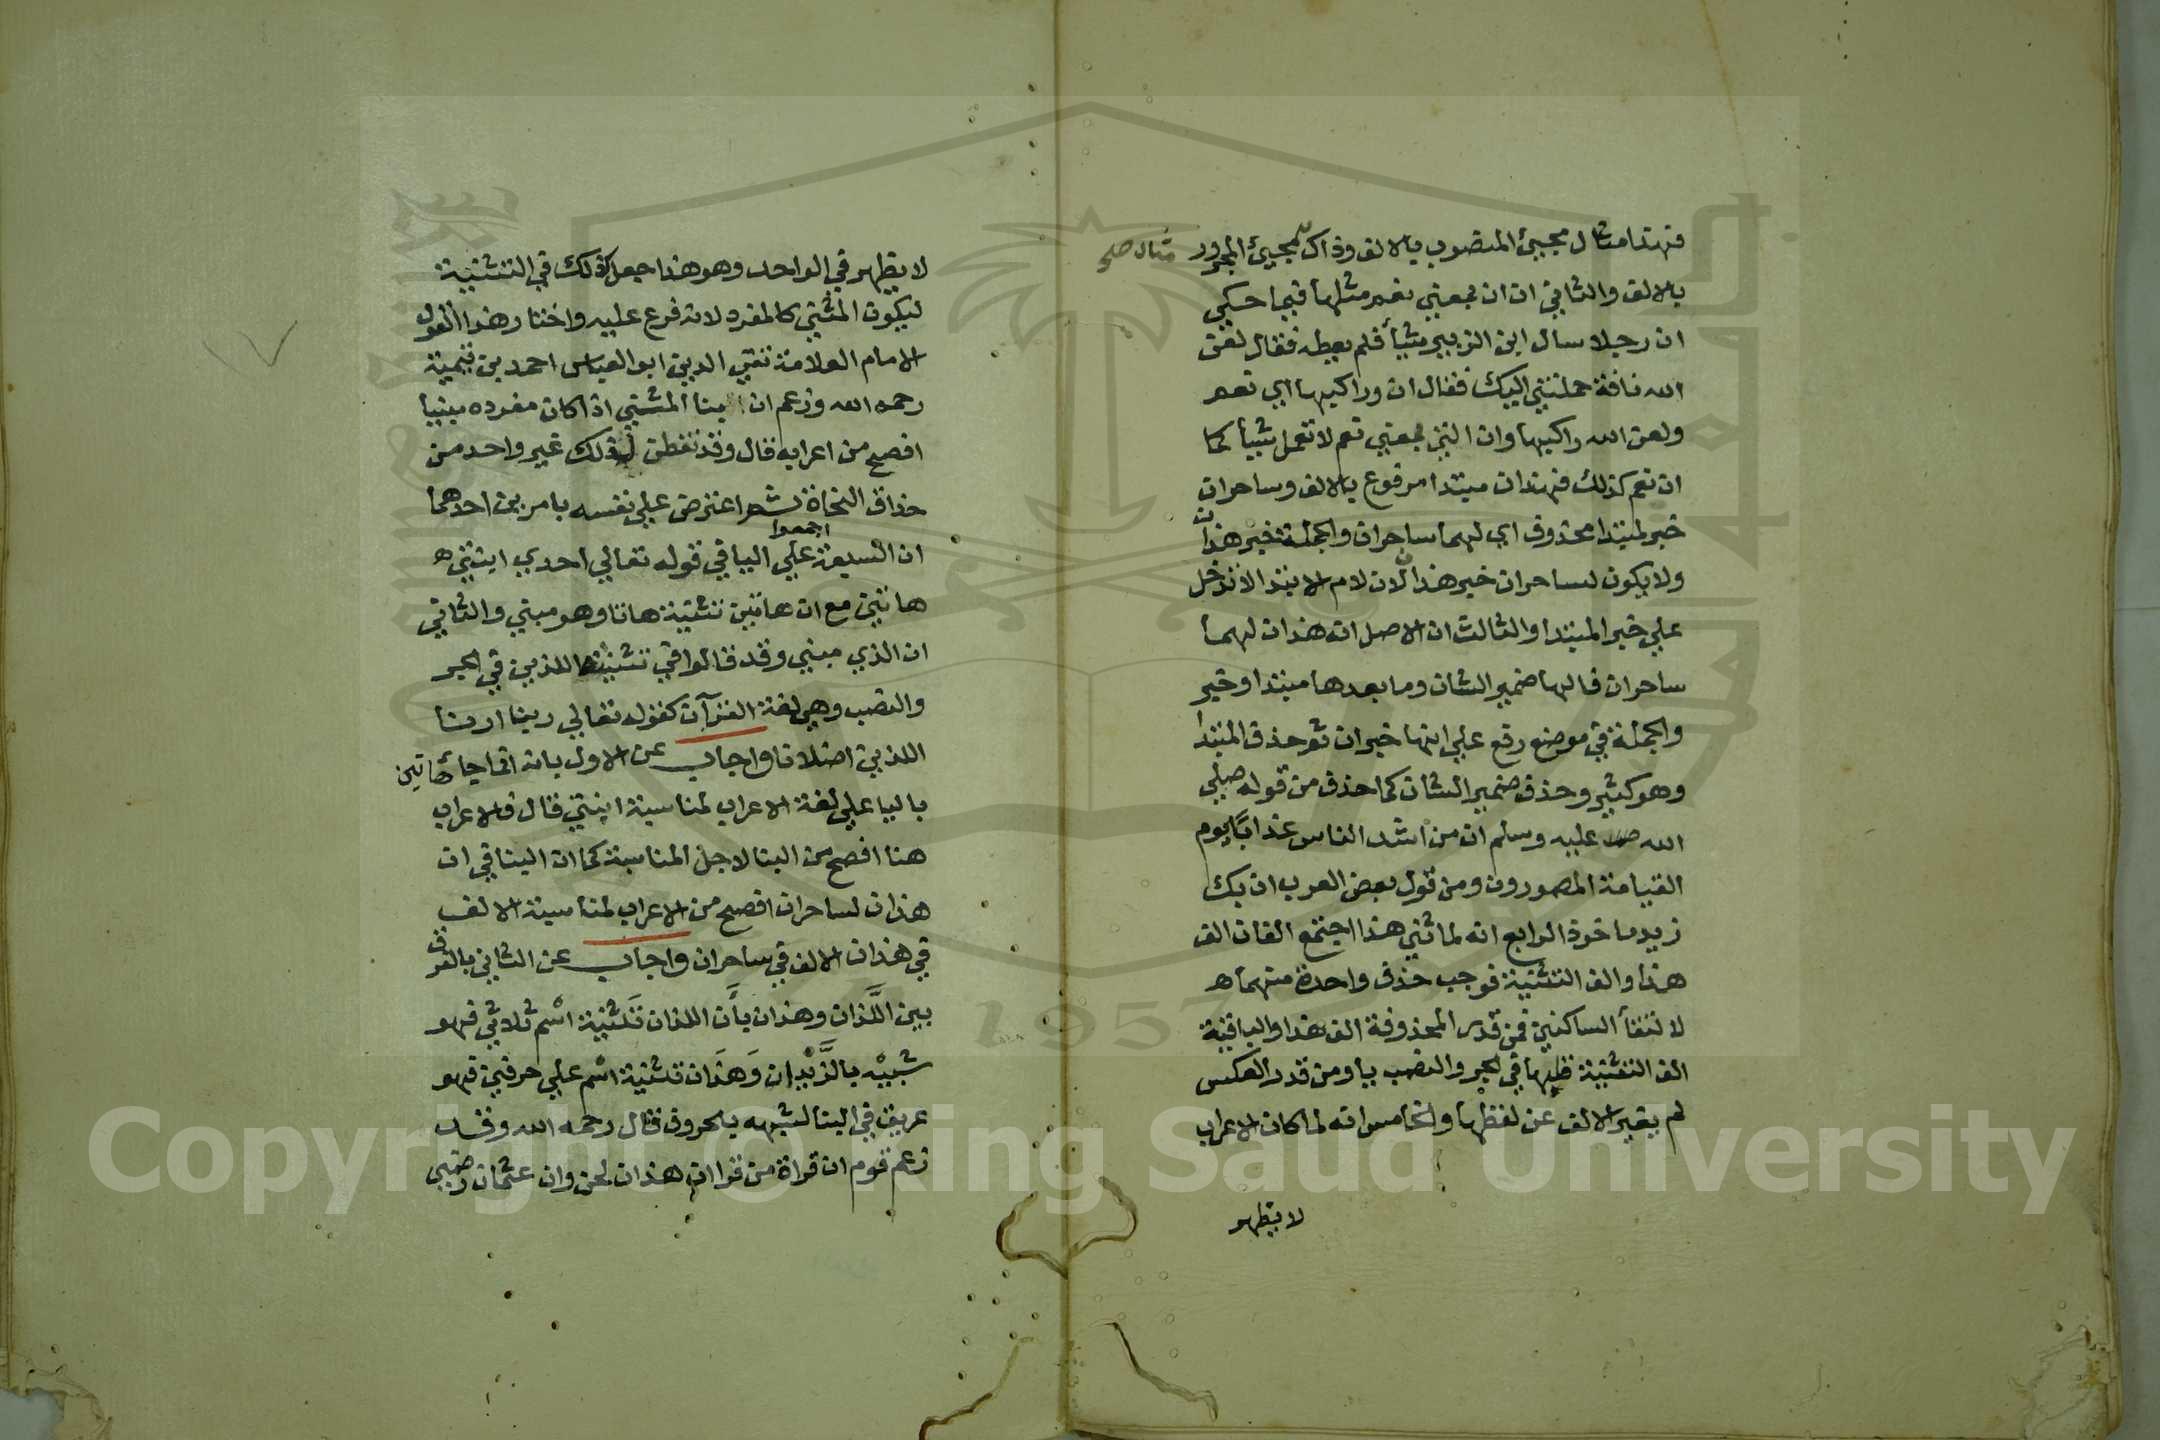 فهذا مثال مجيئ المنصوب بالالف وذاك لمجيئ المجرور
مثال صح
بالالف والثاني ان ان بمعني نعم مثلها فيما حكي
ان رجلا سال ابن الزبير شيأ فلم يعطه فقال لعن
الله ناقة حملتني اليك فقال ان وراكبها اي نعم
ولعن الله راكبها وان التي بمعني نعم لا تعمل شيأ كما
ان نعم كذلك فهذان مبتدا مرفوع بالالف وساحران
خبر لمبتدا محذوف اي لهما ساحران والجملة خبر هذان
ولا يكون لساحران خبر هذان لان لام الابتدا لا تدخل
علي خبر المبتدا والثالث ان الاصل انه هذان لهما
ساحران فالها ضمير الشان وما بعدها مبتدا وخبر
والجملة في موضع رفع علي انها خبر ان ثم حذف المبتدا
وهو كثير وحذف ضمير الشان كما حذف من قوله صلي
الله عليه وسلم ان من اشد الناس عذابا يوم
القيامة المصورون ومن قول بعض العرب ان بك
زيد ماخوذ الرابع انه لما ثني هذا اجتمع الفان الف
هذا والف التثنية فوجب حذف واحدة منهما ه
لالتقأ الساكنين فمن قدر المحذوفة الف هذا والباقية
الف التثنية قلبها في الجر والنصب يا ومن قدر العكس
لم يغير الالف عن لفظها والخامس انه لما كان الاعراب
لا يظهر
لا يظهر في الواحد وهو هذا جعل كذلك في التثنية
ليكون المثني كالمفرد لانه فرع عليه واختار هذا القول
الامام العلامة تقي الدين ابو العباس احمد بن تيمية
رحمه الله وزعم ان بنا المثني اذا كان مفرده مبنيا
افصح من اعرابه قال وقد تفطن لذلك غير واحد من
حذاق النحاة ثم اعترض علي نفسه بامرين احدهما
اجمعوا
ان السبعة علي اليا في قوله تعالي احدي ابنتي ه
هاتين مع ان هاتين تثنية هاتا وهو مبني والثاني
ان الذي مبني وقد قالوا في تثنيته اللذين في الجر
والنصب وهي لغة القرآن كقوله تعالي ربنا ارنا
اللذين اضلانا واجاب عن الاول بانه انما جا هاتين
باليا علي لغة الاعراب لمناسبة ابنتي قال فالاعراب
هنا افصح من البنا لاجل المناسبة كما ان البنا في ان
هذان لساحران افصح من الاعراب لمناسبة الالف
في هذان الالف في ساحران واجاب عن الثاني بالفرق
بين اللَّذان وهذان بأَن اللذان تَثنية اسْم ثلاثي فهو
شبيْه بالزَّيدان وَهَذَان تثنية اسْم علي حرفين فهو
عريق في البنا لشبهه بالحروف قال رحمه الله وقد
زعم قوم ان قراة من قرا ان هذان لحن وان عثمان رضي
Copyright © King Saud University
1957